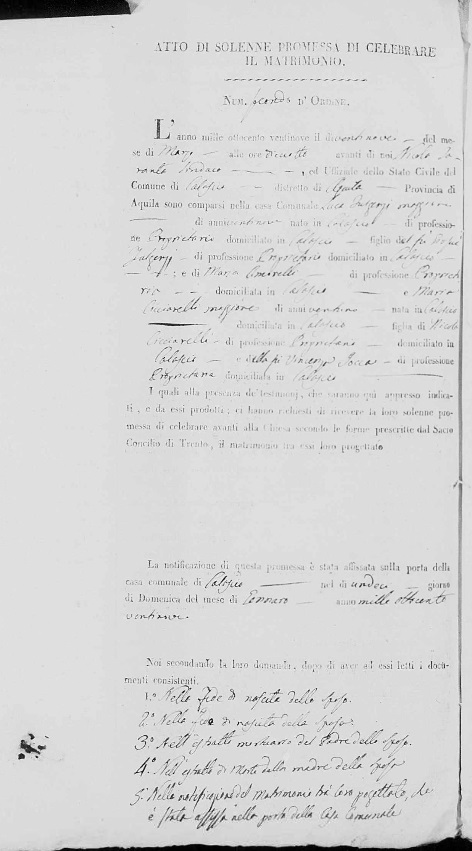 ATTO DI SOLENNE PROMESSA DI CELEBRARE
IL MATRIMONIO.
NUM. secondo D'ORDINE.
L'anno mille ottocento ventinove il diventinove del me-
se di Marzo alle ore avanti di noi Nicola
Sindaco ed Uffiziale della Stato Civile del
Comune di Calascio distretto di Aquila Provincia di
Aquila sono comparsi nella casa Comunale Luca maggiore
di anni ventinove nato in Calascio di professio-
ne Proprietario domiciliato in Calascio figlio del fu
di professione Proprietario domiciliato in Calascio
; e di Maria Ciccarelli di professione Proprieta-
ria domiciliata in Calascio e Maria
Ciccarelli maggiore di anni ventuno nata in Calascio
domiciliata in Calascio figlia di Nicola
Ciccarelli di professione Proprietario domiciliato in
Calascio e della fu Vincenza di professione
Proprietaria domiciliata in Calascio
I quali alla presenza de' testimonj, che saranno quì appresso indica-
ti, e da essi prodotti; ci hanno richiesti di ricevere la loro solenne pro-
messa di celebrare avanti alla Chiesa secondo le forme prescritte dal Sacro
Concilio di Trento, il matrimonio tra essi loro progettato
La notificazione di questa promessa è stata affissata sulla porta della
casa comunale di Calascio nel dì undeci giorno
di Domenica del mese di Gennaro anno mille ottocento
ventinove
Noi secondando la loro domanda, dopo di aver ad essi letti i docu-
menti consistenti.
1.° Nella Fede di nascita dello Sposo.
2.° Nella Fede di nascita della Sposa.
3.° Nell'estratto mortuario del Padre dello Sposo.
4.° Nell'estratto di Morte della madre della Sposa
5.° Nella notificazione del Matrimonio trà loro progettato, che
è stata affissa nella porta della Casa Comunale